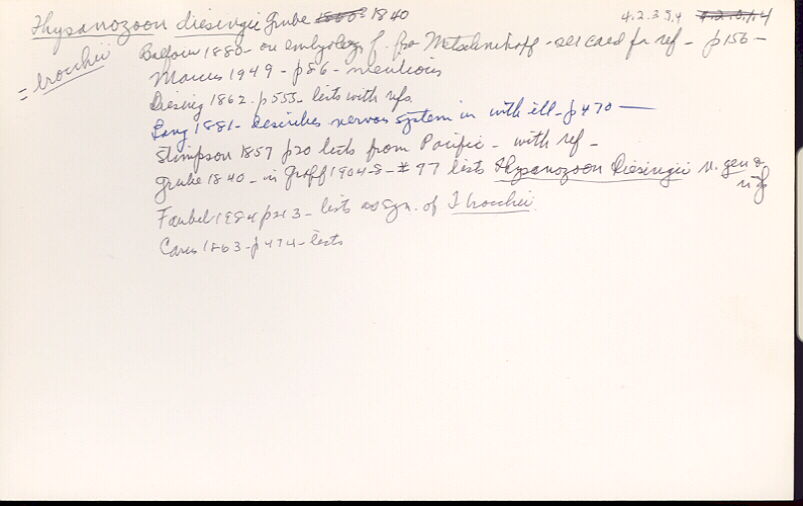 Thysanozoon diesingii Grube 1840 4.2.3.9.4
= brocchii
Balfour 1880 - on embryology f. fro Metschnikoff - see card for ref - p 156 -
Marcus 1949 - p 86 - mentions
Diesing 1862 - p 555 - lists with refs
Lang 1881 - describes nervous system in with ill - p 470 -
Stimpson 1857 p 20 lists from Pacific - with ref -
Grube 1840 - in Graff 1904-8 - # 97 lists Thysanozoon Diesingii n. gen &
n. sp
Faubel 1984 p 213 - lists as syn. of T brocchii
Carus 1863 - p 474 - lists